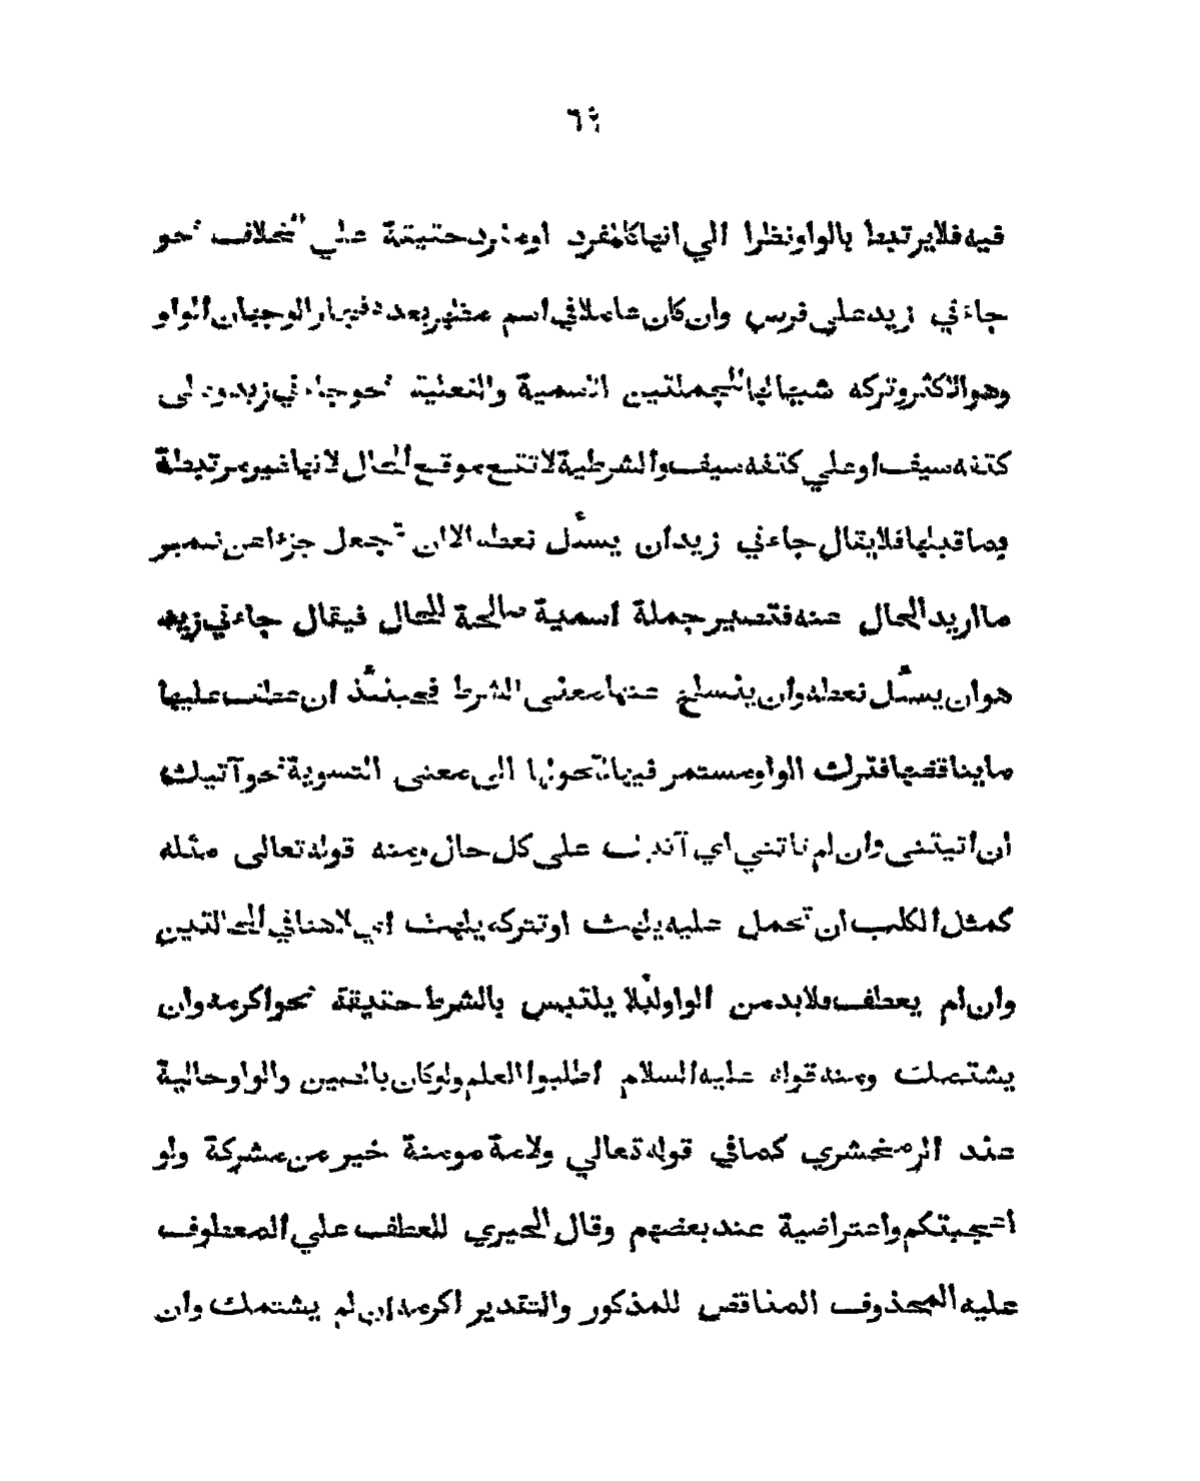 ٦٤
فيه فلا يرتبط بالواو نظرا الي انها كالمفرد او مفرد حقيقة علي الخلاف نحو
جاءني زيد علي فرس وان كان عاملا في اسم مظهر بعده فيها الوجهان الواو
وهو الاكثر وتركه شبها لها بالجملتين الاسمية والفعلية نحو جاءني زيد وعلى
كتفه سيف او علي كتفه سيف والشرطية لا تقع موقع الحال لانها غير مرتبطة
بما قبلها فلا يقال جاءني زيد ان يسأل نعطه الا ان تجعل جزءا عن ضمير
ما اريد الحال عنه فتصير جملة اسمية صالحة للحال فيقال جاءني زيد
هو ان يسئل نعطه وان ينسلخ عنها معنى الشرط فحينئذ ان عطف عليها
ما يناقضها فترك الواو مستمر فيها لتحولها الى معنى التسوية نحو آتيك
ان اتيتنى وان لم تاتني اي آتيك على كل حال ومنه قوله تعالى مثله
كمثل الكلب ان تحمل عليه يلهث او تتركه يلهث اي لاهثا في الحالتين
وان لم يعطف فلا بد من الواو لئلا يلتبس بالشرط حقيقة نحو اكرمه وان
يشتمك ومنه قوله عليه السلام اطلبوا العلم ولو كان بالصين والواو حالية
عند الزمخشري كما في قوله تعالي ولامة مومنة خير من مشركة ولو
اعجبتكم واعتراضية عند بعضهم وقال الحيري للعطف علي المعطوف
عليه المحذوف المناقض للمذكور والتقدير اكرمه ان لم يشتمك وان